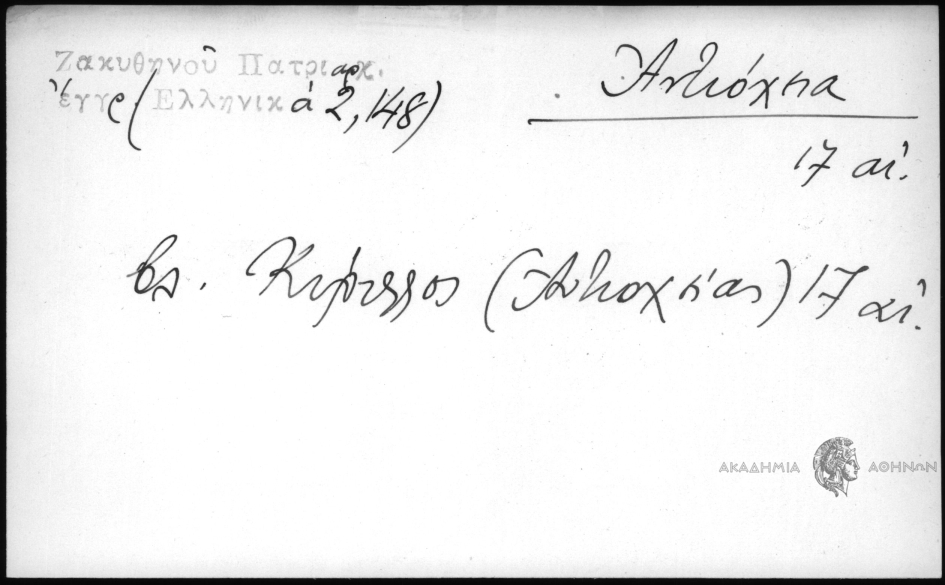 Ζακυθηνοῦ Πατριαρχ.
ἔγγρ (Ἑλληνικά 2, 148)
Ἀντιόχεια
17 αἰ.
βλ. Κύριλλος (Ἀντιοχείας) 17 αἰ.
ΑΚΑΔΗΜΙΑ ΑΘΗΝΩΝ